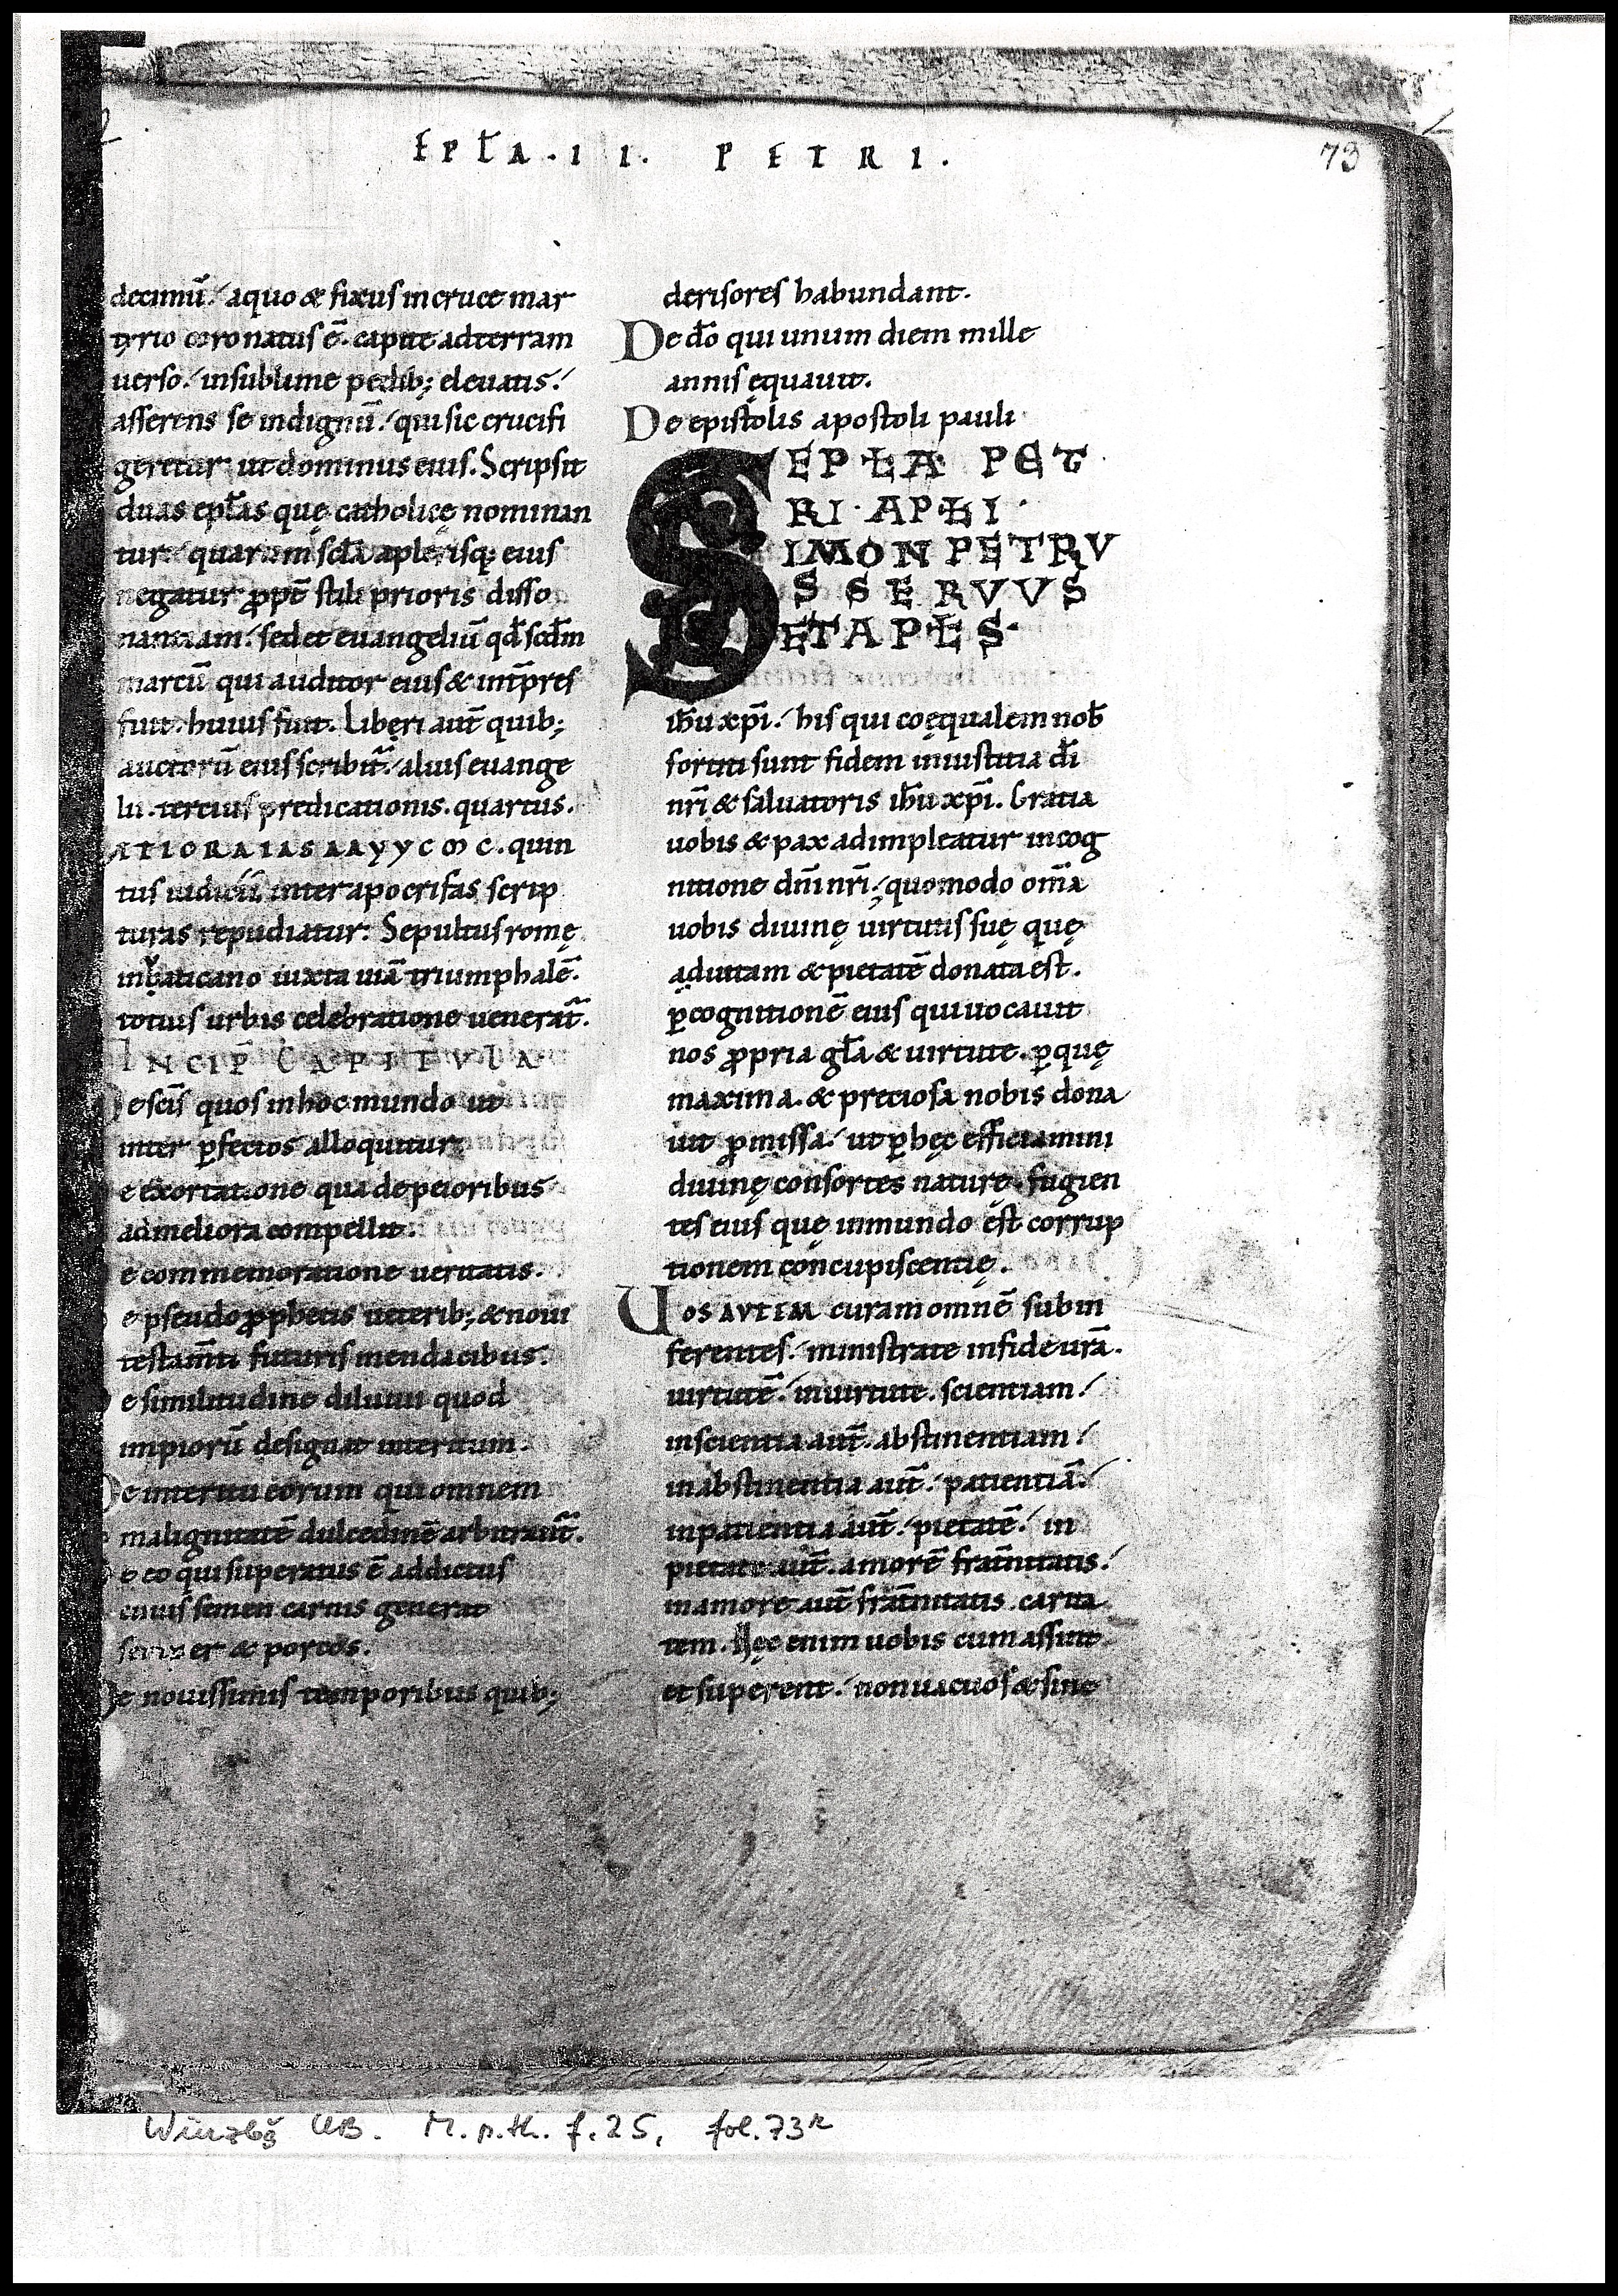 EPŁA · I I · P E T R I ·
73
decimū. aquo & fixus incruce mar
tyrio coronatus ē. capite adterram
uerso. insublime pedib; eleuatis.
asserens se indignū. qui sic crucifi
geretur ut dominus eius. Scripsit
duas epłas quę catholicę nominan
tur quarum scđa aple risq; eius
negatur ꝓpt̄ stili prioris disso
nantiam. sed et euangeliū qđ scđm
marcū qui auditor eius & int̄pres
fuit. huius fuit. Liberi aut̄ quib;
auctorū eius scribit̄. alius euange
lii. tercius predicationis. quartus.
quin
tus iudicii inter apocrifas scrip
turas repudiatur. Sepultus romę
inuaticano iuxta uiā triumphalē.
totius urbis celebratione uenerat̄.
INCIP̄ CAPITVLA
e scīs quos inhoc mundo ut
inter ꝑfectos alloquitur
e exortatione qua depeioribus
admeliora compellit.
e commemoratione ueritatis.
e pseudo ꝓphetis ueterib; & noui
testam̄ti futuris mendacibus.
e similitudine diluuii quod
impiorū designat interitum.
De interitu eorum qui omnem
malignitatē dulcedinē arbitrant̄.
e eo qui superatus ē addictus
cuius semen carnis generat
& porcos.
De nouissimis temporibus quib;
derisores habundant.
De dō qui unum diem mille
annis ęquauit.
De epistolis apostoli pauli
EPŁA PET
RI · APŁI ·
SIMON PETRV
S SERVVS
ET APŁS ·
ihū xpī. his qui coęqualem nob̄
sortiti sunt fidem iniustitia dī
nrī & saluatoris ihū xpī. Gratia
uobis & pax adimpleatur incog
nitione dnī nrī. quomodo om̄a
uobis diuinę uirtutis suę quę
aduitam & pietatē donata est.
ꝑcognitionē eius qui uocauit
nos ꝓpria gła & uirtute. ꝑquę
maxima. & preciosa nobis dona
uit ꝓmissa. ut ꝑhęc efficiamini
diuinę consortes naturę. fugien
tes eius quę inmundo est corrup
tionem concupiscentię.
Uos AVTEM curam omnē subin
ferentes. ministrate infide urā.
uirtutē. inuirtute. scientiam.
inscientia aut̄. abstinentiam.
inabstinentia aut̄. patientiā.
inpatientia aut̄. pietatē. in
pietate aut̄. amorē frat̄nitatis.
inamore aut̄ frat̄nitatis. carita
tem. Hęc enim uobis cum assint
et superent. non uacuos & sine
Würzbg UB. M.p.th. f. 25, fol. 73r